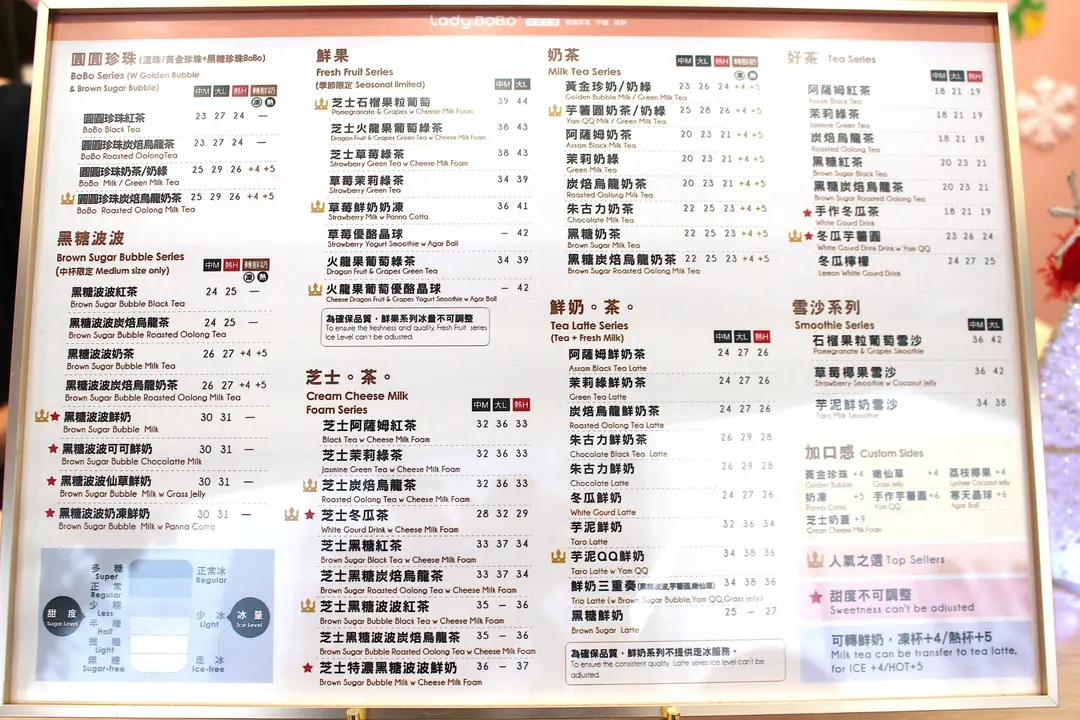 Lady.BoBo
圓圓珍珠 (混珠/黃金珍珠+黑糖珍珠BoBo)
BoBo Series (W Golden Bubble
& Brown Sugar Bubble)
中M 大L 熱H 轉鮮奶
凍 熱
圓圓珍珠紅茶 23 27 24 —
BoBo Black Tea
圓圓珍珠炭焙烏龍茶 23 27 24 —
BoBo Roasted OolongTea
圓圓珍珠奶茶/奶綠 25 29 26 +4 +5
BoBo Milk / Green Milk Tea
圓圓珍珠炭焙烏龍奶茶 25 29 26 +4 +5
BoBo Roasted Oolong Milk Tea
黑糖波波
Brown Sugar Bubble Series
(中杯限定 Medium size only)
中M 熱H 轉鮮奶
凍 熱
黑糖波波紅茶 24 25 —
Brown Sugar Bubble Black Tea
黑糖波波炭焙烏龍茶 24 25 —
Brown Sugar Bubble Roasted Oolong Tea
黑糖波波奶茶 26 27 +4 +5
Brown Sugar Bubble Milk Tea
黑糖波波炭焙烏龍奶茶 26 27 +4 +5
Brown Sugar Bubble Roasted Oolong Milk Tea
黑糖波波鮮奶 30 31 —
Brown Sugar Bubble Milk
黑糖波波可可鮮奶 30 31 —
Brown Sugar Bubble Chocolatte Milk
黑糖波波仙草鮮奶 30 31 —
Brown Sugar Bubble Milk w Grass Jelly
黑糖波波奶凍鮮奶 30 31 —
Brown Sugar Bubble Milk w Panna Cotta
甜度
Sugar Level
多糖
Super
正常
Regular
少糖
Less
半糖
Half
微糖
Light
無糖
Sugar-free
正常冰
Regular
少冰
Light
走冰
Ice-free
冰量
Ice Level
鮮果
Fresh Fruit Series
(季節限定 Seasonal limited)
中M 大L
芝士石榴果粒葡萄 39 44
Pomegranate & Grapes w Cheese Milk Foam
芝士火龍果葡萄綠茶 38 43
Dragon Fruit & Grapes Green Tea w Cheese Milk Foam
芝士草莓綠茶 38 43
Strawberry Green Tea w Cheese Milk Foam
草莓茉莉綠茶 34 39
Strawberry Green Tea
草莓鮮奶奶凍 36 41
Strawberry Milk w Panna Cotta
草莓優酪晶球 — 42
Strawberry Yogurt Smoothie w Agar Ball
火龍果葡萄綠茶 34 39
Dragon Fruit & Grapes Green Tea
火龍果葡萄優酪晶球 — 42
Cheese Dragon Fruit & Grapes Yogurt Smoothie w Agar Ball
為確保品質，鮮果系列冰量不可調整
To ensure the freshness and quality, Fresh Fruit series
Ice Level can't be adjusted.
芝士。茶。
Cream Cheese Milk
Foam Series
中M 大L 熱H
芝士阿薩姆紅茶 32 36 33
Black Tea w Cheese Milk Foam
芝士茉莉綠茶 32 36 33
Jasmine Green Tea w Cheese Milk Foam
芝士炭焙烏龍 32 36 33
Roasted Oolong Tea w Cheese Milk Foam
芝士冬瓜茶 28 32 29
White Gourd Drink w Cheese Milk Foam
芝士黑糖紅茶 33 37 34
Brown Sugar Black Tea w Cheese Milk Foam
芝士黑糖炭焙烏龍茶 33 37 34
Brown Sugar Roasted Oolong Tea w Cheese Milk Foam
芝士黑糖波波紅茶 35 — 36
Brown Sugar Bubble Black Tea w Cheese Milk Foam
芝士黑糖波波炭焙烏龍茶 35 — 36
Brown Sugar Bubble Roasted Oolong Tea w Cheese Milk Foam
芝士特濃黑糖波波鮮奶 36 — 37
Brown Sugar Bubble Milk w Cheese Milk Foam
奶茶
Milk Tea Series
中M 大L 熱H 轉鮮奶
凍 熱
黃金珍珠奶/奶綠 23 26 24 +4 +5
Golden Bubble Milk / Green Milk Tea
芋薯圓奶茶/奶綠 25 28 26 +4 +5
Yam QQ Milk / Green Milk Tea
阿薩姆奶茶 20 23 21 +4 +5
Assam Black Milk Tea
茉莉奶綠 20 23 21 +4 +5
Green Milk Tea
炭焙烏龍奶茶 20 23 21 +4 +5
Roasted Oolong Milk Tea
朱古力奶茶 22 25 23 +4 +5
Chocolate Milk Tea
黑糖奶茶 22 25 23 +4 +5
Brown Sugar Milk Tea
黑糖炭焙烏龍奶茶 22 25 23 +4 +5
Brown Sugar Roasted Oolong Milk Tea
鮮奶。茶。
Tea Latte Series
(Tea + Fresh Milk)
中M 大L 熱H
阿薩姆鮮奶茶 24 27 26
Assam Black Tea Latte
茉莉綠鮮奶茶 24 27 26
Green Tea Latte
炭焙烏龍鮮奶茶 24 27 26
Roasted Oolong Tea Latte
朱古力鮮奶茶 26 29 28
Chocolate Black Tea Latte
朱古力鮮奶 26 29 28
Chocolate Latte
冬瓜鮮奶 24 27 26
White Gourd Latte
芋泥鮮奶 32 36 34
Taro Latte
芋泥QQ鮮奶 34 38 36
Taro Latte w Yam QQ
鮮奶三重奏(黑糖波波,芋薯圓,嫩仙草) 34 38 36
Trio Latte (w Brown Sugar Bubble,Yam QQ,Grass Jelly)
黑糖鮮奶 25 — 27
Brown Sugar Latte
為確保品質，鮮奶系列不提供走冰服務。
To ensure the consistent quality, Latte series ice level can't be
adjusted.
好茶 Tea Series
中M 大L 熱H
阿薩姆紅茶 18 21 19
Assam Black Tea
茉莉綠茶 18 21 19
Jasmine Green Tea
炭焙烏龍茶 18 21 19
Roasted Oolong Tea
黑糖紅茶 20 23 21
Brown Sugar Black Tea
黑糖炭焙烏龍茶 20 23 21
Brown Sugar Roasted Oolong Tea
手作冬瓜茶 18 21 19
White Gourd Drink
冬瓜芋薯圓 23 26 24
White Gourd Drink Drink w Yam QQ
冬瓜檸檬 24 27 25
Lemon White Gourd Drink
雪沙系列
Smoothie Series
中M 大L
石榴果粒葡萄雪沙 36 42
Pomegranate & Grapes Smoothie
草莓椰果雪沙 36 42
Strawberry Smoothie w Coconut Jelly
芋泥鮮奶雪沙 34 38
Taro Milk Smoothie
加口感 Custom Sides
黃金珍珠 +4 嫩仙草 +4 荔枝椰果 +4
Golden Bubble Grass Jelly Lychee Coconut Jelly
奶凍 +5 手作芋薯圓 +6 寒天晶球 +6
Panna Cotta Yam QQ Agar Ball
芝士奶蓋 +9
Cream Cheese Milk Foam
人氣之選 Top Sellers
甜度不可調整
Sweetness can't be adjusted
可轉鮮奶，凍杯+4/熱杯+5
Milk tea can be transfer to tea latte,
for ICE +4/HOT+5